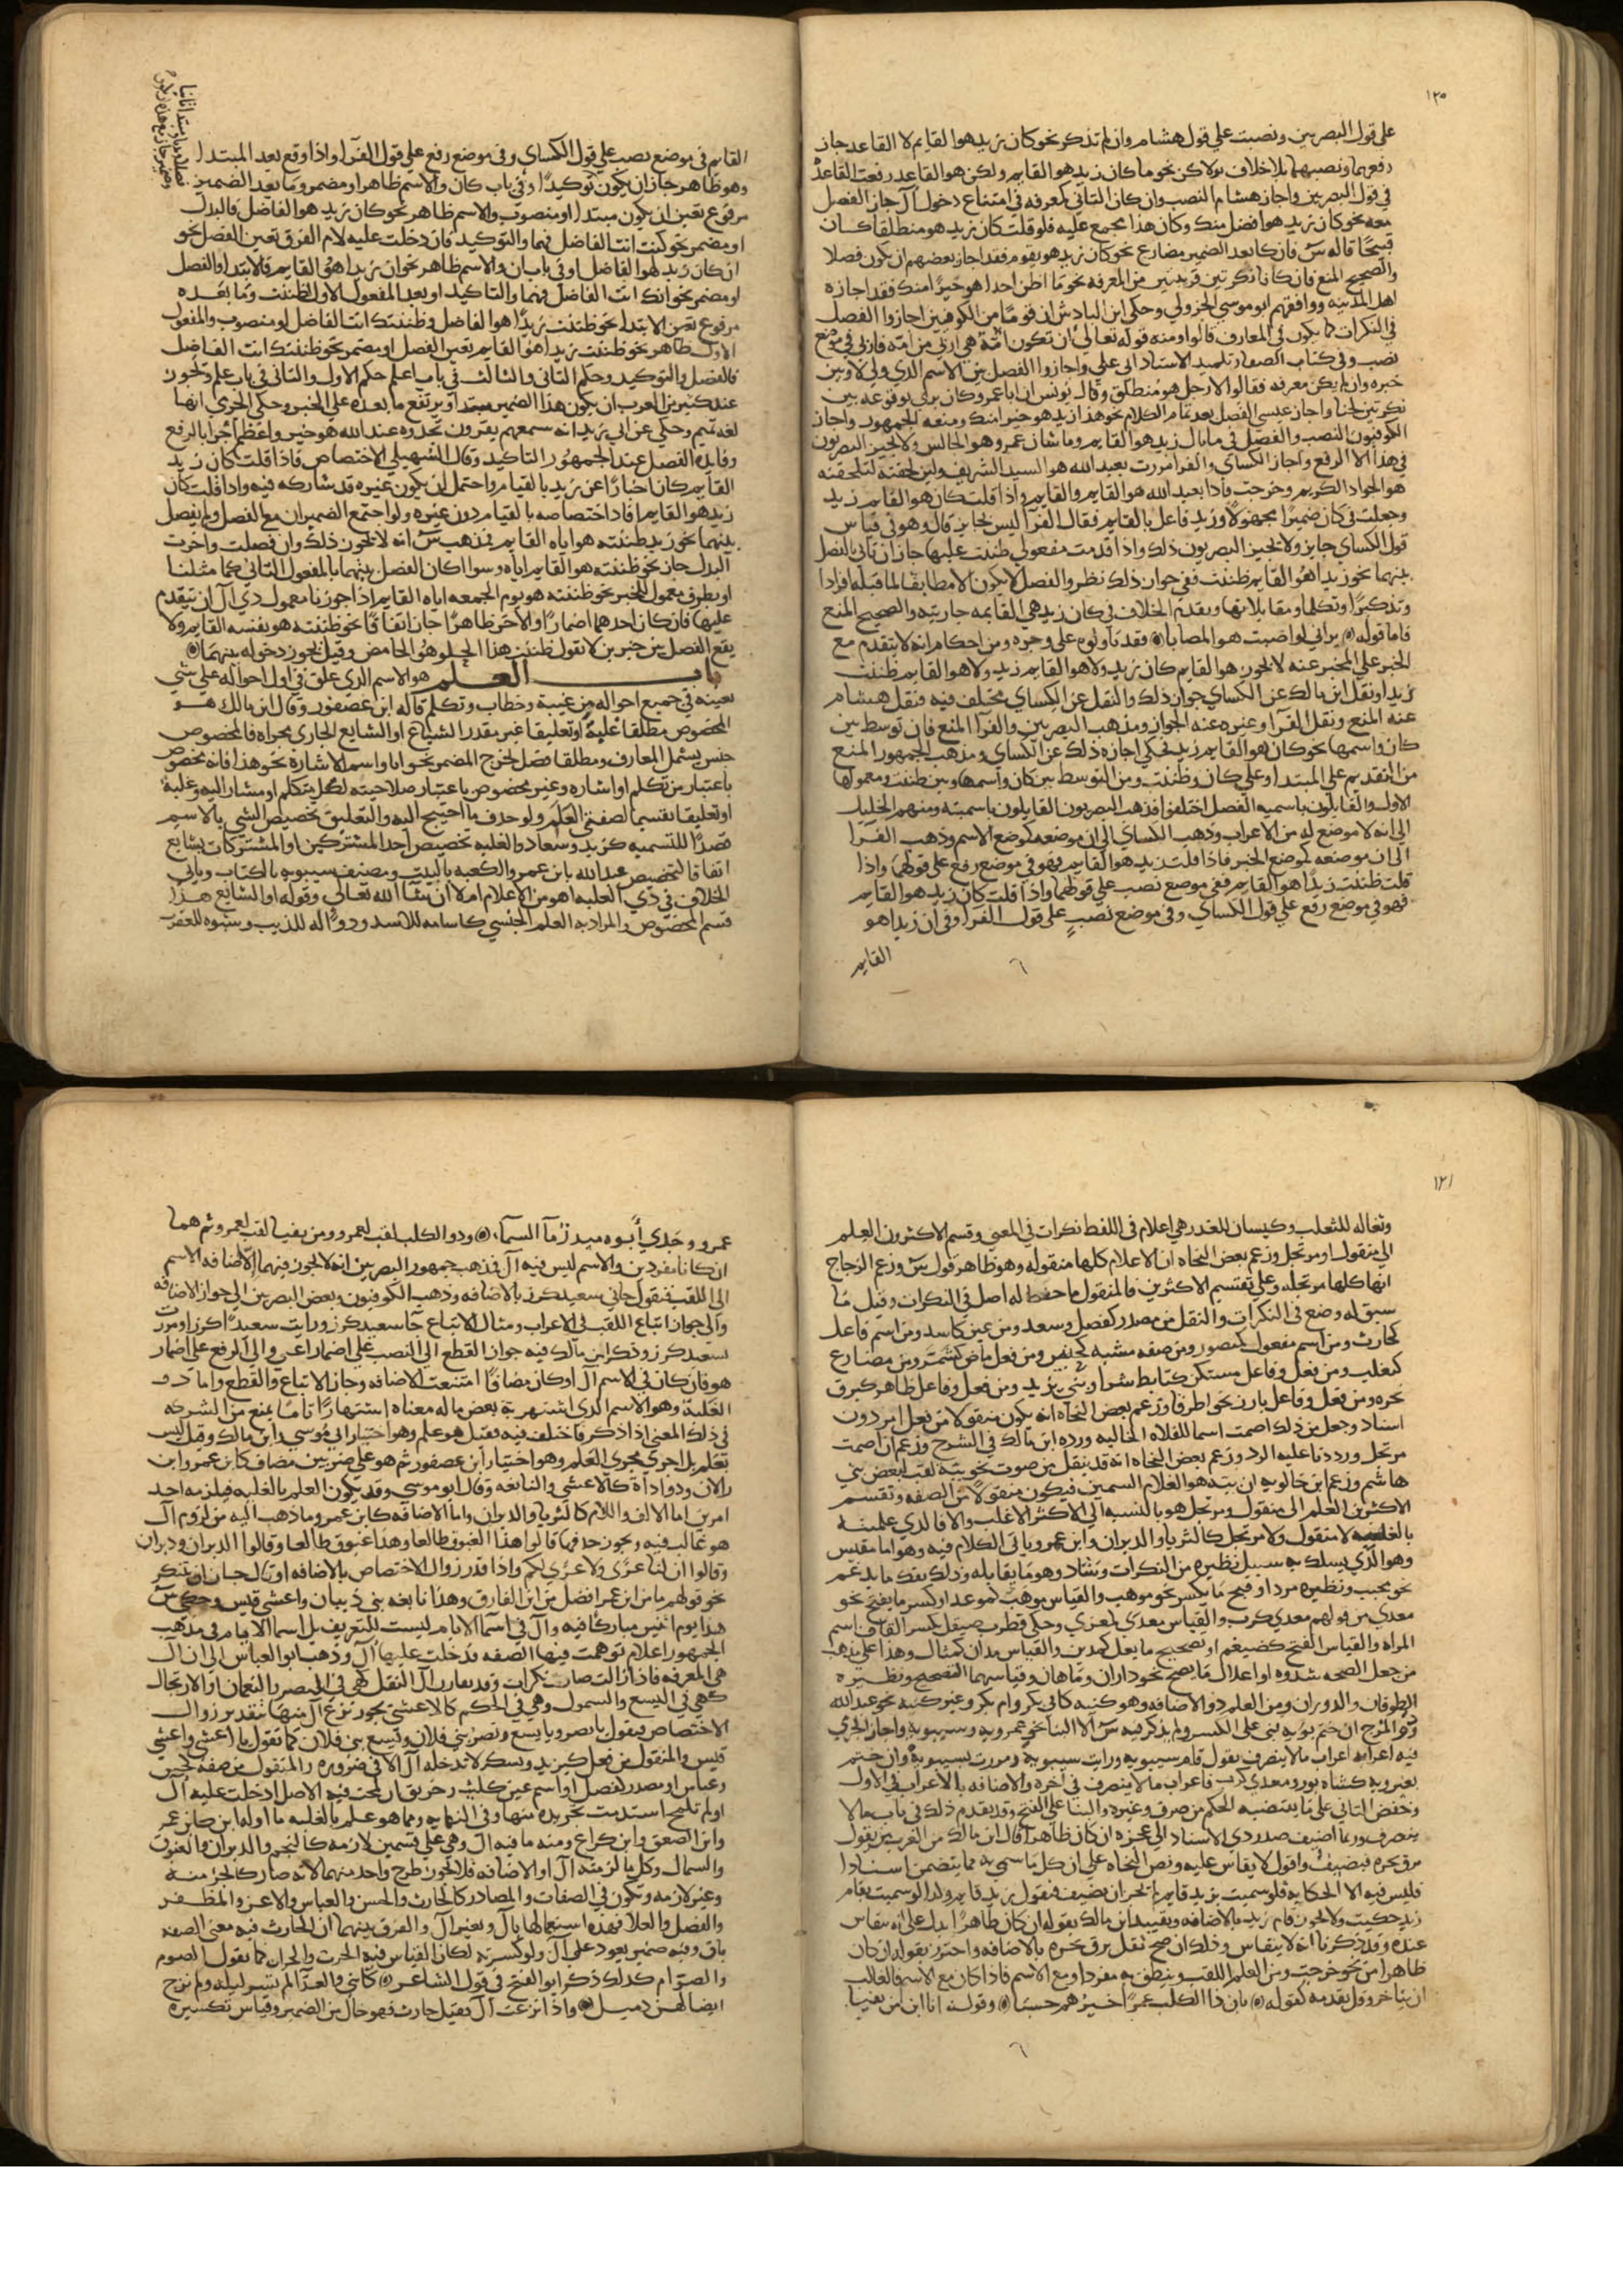 ١٢٠
على قول البصريين ونصبت علي قول هشام وان لم تذكر نحو كان زيد هو القايم لا القاعد جاز
رفعهما ونصبهما بلا خلاف ولاكن نحو ما كان زيد هو القايم ولكن هو القاعد رفعت القاعد
في قول البصريين واجاز هشام النصب وان كان الثاني كمعرفه في امتناع دخول آل جاز الفصل
معه نحو كان زيد هو افضل منك وكان هذا مجمع عليه فلو قلت كان زيد هو منطلقا كان
قبيحا قاله س فان كا بعد الضمير مضارع نحو كان زيد هو يقوم فقد اجاز بعضهم ان يكون فصلا
والصحيح المنع فان كانا نكرتين قريبتين من المعرفه نحو ما اظن احدا هو خيرا منك فقد اجازه
اهل المدينه ووافقهم ابو موسي الجزولي وحكي ابن الباذش ان قوما من الكوفيين اجازوا الفصل
في النكرات كما يكون في المعارف قالوا ومنه قوله تعالي ان تكون امة هي اربي من امة فاربي في موضع
نصب وفي كتاب الصفار تلميذ الاستاد ابي علي واجازوا الفصل بين الاسم الذي ولي لا وبين
خبره وان لم يكن معرفه فقالوا لا رجل هو منطلق وقال يونس ان ابا عمرو كان يري وقوعه بين
نكرتين لحنا واجاز عيسي الفصل بعد تمام الكلام نحو هذا زيد هو خيرا منك ومنعه الجمهور واجاز
الكوفيون النصب والفصل في ما بال زيد هو القايم وما شان عمرو هو الجالس ولا يجيز البصريون
في هذا الا الرفع واجاز الكساي والفرا مررت بعبد الله هو السيد الشريف ولين لحقته لتلحقنه
هو الجواد الكريم وخرجت فاذا بعبد الله هو القايم والقايم واذا قلت كان هو القايم زيد
وجعلت في كان ضميرا مجهولا وزيد فاعل بالقايم فقال الفرا ليس بجايز قال وهو في قياس
قول الكساي جايز ولا يجيز البصريون ذلك واذا قدمت مفعولي ظننت عليها جاز ان تاتي بالفصل
بينهما نحو زيدا هو القايم ظننت ففي جواز ذلك نظر والفصل لا يكون الا مطابقا لما قبله افرادا
وتذكيرا وتكلما ومقابلاتها وتقدم الخلاف في كان زيد هي القايمه جاريته والصحيح المنع
فاما قوله يراني لو اصبت هو المصابا فقد تاولوه على وجوه ومن احكامه انه لا يتقدم مع
الخبر علي المخبر عنه لا يجوز هو القايم كان زيد ولا هو القايم زيد ولا هو القايم ظننت
زيدا ونقل ابن مالك عن الكساي جواز ذلك والنقل عن الكساي مختلف فيه فنقل هشام
عنه المنع ونقل الفرا وغيره عنه الجواز ومذهب البصريين والفرا المنع فان توسط بين
كان واسمها نحو كان هو القايم زيد فحكي اجازه ذلك عن الكساي ومذهب الجمهور المنع
من التقديم علي المبتدا وعلي كان وظننت ومن التوسط بين كان واسمها وبين ظننت ومعمولها
الاول والقايلون باسميه الفصل اختلفوا فذهب البصريون القايلون باسميته ومنهم الخليل
الي انه لا موضع له من الاعراب وذهب الكساي الي ان موضعه كموضع الاسم وذهب الفرا
الي ان موضعه كموضع الخبر فاذا قلت زيد هو القايم فهو في موضع رفع على قولهما واذا
قلت ظننت زيدا هو القايم ففي موضع نصب علي قولهما واذا قلت كان زيد هو القايم
فهو في موضع رفع علي قول الكساي وفي موضع نصب علي قول الفرا وفي ان زيدا هو
القايم
القايم في موضع نصب علي قول الكساي وفي موضع رفع علي قول الفرآ واذا وقع بعد المبتدا
وهو ظاهر جاز ان يكون توكيدا وفي باب كان والاسم ظاهر او مضمر وما بعد الضمير
مرفوع تعين ان يكون مبتدا او منصوب والاسم ظاهر نحو كان زيد هو الفاضل فالبدل
او مضمر نحو كنت انت الفاضل فهما والتوكيد فان دخلت عليه لام الفرق تعين الفصل نحو
ان كان زيد لهو الفاضل او في باب ان والاسم ظاهر نحو ان زيدا هو القايم فالابتدا والفصل
او مضمر نحو انك انت الفاضل فهما والتاكيد او بعد المفعول الاول لظننت وما بعده
مرفوع تعين الابتدا نحو ظننت زيدا هو الفاضل وظننتك انت الفاضل او منصوب والمفعول
الاول ظاهر نحو ظننت زيدا هو القايم تعين الفصل او مضمر نحو ظننتك انت الفاضل
فالفصل والتوكيد وحكم الثاني والثالث في باب اعلم حكم الاول والثاني في باب علم ويجوز
عند كثير من العرب ان يكون هذا الضمير مبتدا ويرتفع ما بعده علي الخبر وحكي الجرمي انها
لغه تميم وحكي عن ابي زيد انه سمعهم يقرون تجدوه عند الله هو خير واعظم اجرا بالرفع
وفايده الفصل عند الجمهور التاكيد وقال السهيلي الاختصاص فاذا قلت كان زيد
القايم كان اخبارا عن زيد بالقيام واحتمل ان يكون غيره قد شاركه فيه واذا قلت كان
زيد هو القايم افاد اختصاصه بالقيام دون غيره ولو اجتمع الضميران مع الفصل ولم يفصل
بينهما نحو زيد ظننته هو اياه القايم فمذهب س انه لا يجوز ذلك وان فصلت واخرت
البدل جاز نحو ظننته هو القايم اياه وسوا كان الفصل بينهما بالمفعول الثاني كما مثلنا
او بظرف معمول للخبر نحو ظننته هو يوم الجمعه اياه القايم اذا جوزنا معمول ذي آل ان يتقدم
عليها فان كان احدهما اضمارا والاخر ظاهرا جاز اتفاقا نحو ظننته هو نفسه القايم ولا
يقع الفصل بين خبرين لا تقول ظننت هذا الحلو هو الحامض وقيل يجوز دخوله بينهما
باب العلم هو الاسم الذي علق في اول احواله علي شي
بعينه في جميع احواله من غيبة وخطاب وتكلم قاله ابن عصفور وقال ابن مالك هو
المخصوص مطلقا غلبة او تعليقا غير مقدر الشياع او الشايع الجاري مجراه فالمخصوص
جنس يشمل المعارف ومطلقا فصل لخرج المضمر نحو انا واسم الاشارة نحو هذا فانه مخصوص
باعتبار من تكلم او اشاره وغير مخصوص باعتبار صلاحيته لكل متكلم او مشار اليه وغلبة
او تعليقا تقسيم لصفتي العلم ولو حذف ما احتيج اليه والتعليق تخصيص الشي بالاسم
قصدا للتسميه كزيد وسعاد والغلبه تخصيص احد المشتركين او المشتركات بشايع
اتفاقا لتخصيص عبد الله بابن عمر والكعبه بالبيت ومصنف سيبويه بالكتاب وياتي
الخلاف في ذي الغلبه اهو من الاعلام ام لا ان شا الله تعالي وقوله او الشايع هذا
قسم المخصوص والمراد به العلم الجنسي كاسامه للاسد وذواله للذيب وشبوه للعقرب
١٢١
وثعاله للثعلب وكيسان للغدر هي اعلام في اللفظ نكرات في المعني وقسم الاكثرون العلم
الي منقول ومرتجل وزعم بعض النحاه ان الاعلام كلها منقوله وهو ظاهر قول س وزعم الزجاج
انها كلها مرتجله وعلي تقسيم الاكثرين فالمنقول ما حفظ له اصل في النكرات وقيل ما
سبق له وضع في النكرات والنقل من مصدر كفضل وسعد ومن عين كاسد ومن اسم فاعل
كحارث ومن اسم مفعول كمنصور ومن صفه مشبه ومن فعل ماض كشمر ومن مضارع
كيغلب ومن فعل وفاعل مستكن كتابط شرا وبني يزيد ومن فعل وفاعل ظاهر كبرق
نحره ومن فعل وفاعل بارز نحو اطرقا وزعم بعض النحاه انه يكون منقولا من فعل امر دون
اسناد وجعل من ذلك اصمت اسما للفلاه الخاليه ورده ابن مالك في الشرح وزعم ان اصمت
مرتجل ورددنا عليه الرد وزعم بعض النحاه انه قد ينقل من صوت نحو ببة لقب لبعض بني
هاشم وزعم ابن خالويه ان ببه هو الغلام السمين فيكون منقولا من الصفه وتقسيم
الاكثرين العلم الي منقول ومرتجل هو بالنسبه الي الاكثر الاغلب والا فالذي علميته
بالغلبه لا منقول ولا مرتجل كالثريا والدبران وابن عمر وياتي الكلام فيه وهو اما مقيس
وهو الذي يسلك به سبيل نظيره من النكرات وشاذ وهو ما يقابله وذلك بفك ما يدغم
نحو محبب ونظيره مرد او فتح ما يكسر نحو موهب والقياس موهب كموعد او كسر ما يفتح نحو
معدي من قولهم معدي كرب والقياس معدى كمعزى وحكي قطرب صيقل بكسر القاف اسم
المراه والقياس الفتح كضيغم او تصحيح ما يعل كمدين والقياس مدان كمثال وهذا علي مذهب
من جعل الصحه شذوذه او اعلال ما يصح نحو داران وماهان وقياسهما التصحيح ونظيره
الطوفان والدوران ومن العلم ذو الاضافه وهو كنيه كابي بكر وام بكر وغير كنيه نحو عبد الله
وذو المزج ان ختم بويه بني علي الكسر ولم يذكر فيه س الا البنا نحو عمرويه وسيبويه واجاز الجرمي
فيه اعرابه اعراب ما لا ينصرف تقول قام سيبويه ورايت سيبويه ومررت بسيبويه وان ختم
بغير ويه كشاه بور ومعدي كرب فاعراب ما لا ينصرف في اخره والاضافه بالاعراب في الاول
وخفض الثاني علي ما يقتضيه الحكم من صرف وغيره والبنا علي الفتح وقد تقدم ذلك في باب ما لا
ينصرف وربما اضيف صدر ذي الاسناد الي عجزه ان كان ظاهرا قال ابن مالك من العرب من يقول
برق نحره فيضيف واقول لا يقاس عليه ونص النحاه علي ان كل ما سمي به مما يتضمن اسنادا
فليس فيه الا الحكايه فلو سميت بزيد قايم لم يجز ان تضيف فتقول زيد قايم ولذا لو سميت بقام
زيد حكيت ولا يجوز قام زيد بالاضافه وتقييد ابن مالك بقوله ان كان ظاهرا يدل علي انه ينقاس
عنده وقد ذكرنا انه لا ينقاس وذلك ان صح نقل برق نحره بالاضافه واحترز بقوله ان كان
ظاهرا من نحو خرجت ومن العلم اللقب وينطق به مفردا ومع الاسم فاذا كان مع الاسم فالغالب
ان يتاخر وقل تقدمه كقوله بان ذا الكلب عمرا خيرهم حسبا وقوله انا ابن مزيقيا
عمرو وجدي ابوه منذر ما السما، وذو الكلب لقب لعمرو ومزيقيا لقب لعمرو ثم هما
ان كانا مفردين والاسم ليس فيه آل فذهب جمهور البصريين انه لا يجوز فيهما الا اضافه الاسم
الي اللقب فتقول جاني سعيد كرز بالاضافه وذهب الكوفيون وبعض البصريين الي جواز الاضافه
والي جواز اتباع اللقب في الاعراب ومثال الاتباع جا سعيد كرز ورايت سعيدا كرزا ومررت
بسعيد كرز وذكر ابن مالك فيه جواز القطع الي النصب علي اضمار اعني والي الرفع علي اضمار
هو فان كان في الاسم آل او كان مضافا امتنعت الاضافه وجاز الاتباع والقطع واما ذو
الغلبة وهو الاسم الذي اشتهر به بعض ما له معناه اشتهارا تاما يمنع من الشركه
في ذلك المعني اذا ذكر فاختلف فيه فقيل هو علم وهو اختيار ابي موسي وابن مالك وقيل ليس
بعلم بل اجري مجري العلم وهو اختيار ابن عصفور ثم هو علي ضربين مضاف كابن عمر وابن
رالان وذو اداة كالاعشي والنابغه وقال ابو موسي وقد يكون العلم بالغلبه فيلزمه احد
امرين اما الالف واللام كالثريا والدبران واما الاضافه كابن عمر وما ذهب اليه من لزوم آل
هو غالب فيه ويجوز حذفها قالوا هذا العيوق طالعا وهذا عيوق طالعا وقالوا الدبران ودبران
وقالوا ان لنا عزى ولا عزى لكم واذا قدر زوال الاختصاص بالاضافه او بال جاز ان تنكر
نحو قولهم ما من ابن عمر افضل من ابن الفارق وهذا نابغه بني ذبيان واعشي قيس وحكي س
هذا يوم اثنين مباركا فيه وآل في اسما الايام ليست للتعريف بل اسما الايام في مذهب
الجمهور اعلام توهمت فيها الصفه فدخلت عليها آل وذهب ابو العباس الي ان ال
هي المعرفه فاذا زالت صارت نكرات وقد يقارن آل النقل كهي في النضر والنعمان والارتجال
كهي في اليسع والسموال وهي في الحكم كالاعشي يجوز نزع آل منها بتقدير زوال
الاختصاص فيقول يا نضر ويا يسع ونضر بني فلان ويسع بني فلان كما تقول يا اعشي واعشي
قيس والمنقول من فعل كيزيد ويشكر لا تدخله آل الا في ضروره والمنقول من صفه كحسن
وعباس او مصدر كفضل او اسم عين كليث وخرنق ان لمحت فيه الاصل ادخلت عليه ال
او لم تلمح استدمت تجريده منها وفي النهايه ومما هو علم بالغلبه ما اوله ابن كابن عمر
وابن الصعق وابن كراع ومنه ما فيه آل وهي علي قسمين لازمه كالنجم والدبران والعيوق
والسماك وكل ما لزمته آل او الاضافه فلا يجوز طرح واحد منهما لانه صار كالجز منه
وغير لازمه وتكون في الصفات والمصادر كالحارث والحسن والعباس والاعز والمظفر
والفضل والعلا فهذه استعمالها بال وبغير آل والفرق بينهما ان الحارث فيه معني الصفه
باق وفيه ضمير يعود علي آل ولو كسرته لكان القياس فيه الحرث والحراث كما تقول الصوم
والصوام كذلك ذكر ابو الفتح في قول الشاعر
ايضا لهن دميل واذا نزعت آل فقيل حارث فهو خال من الضمير وقياس تكسيره